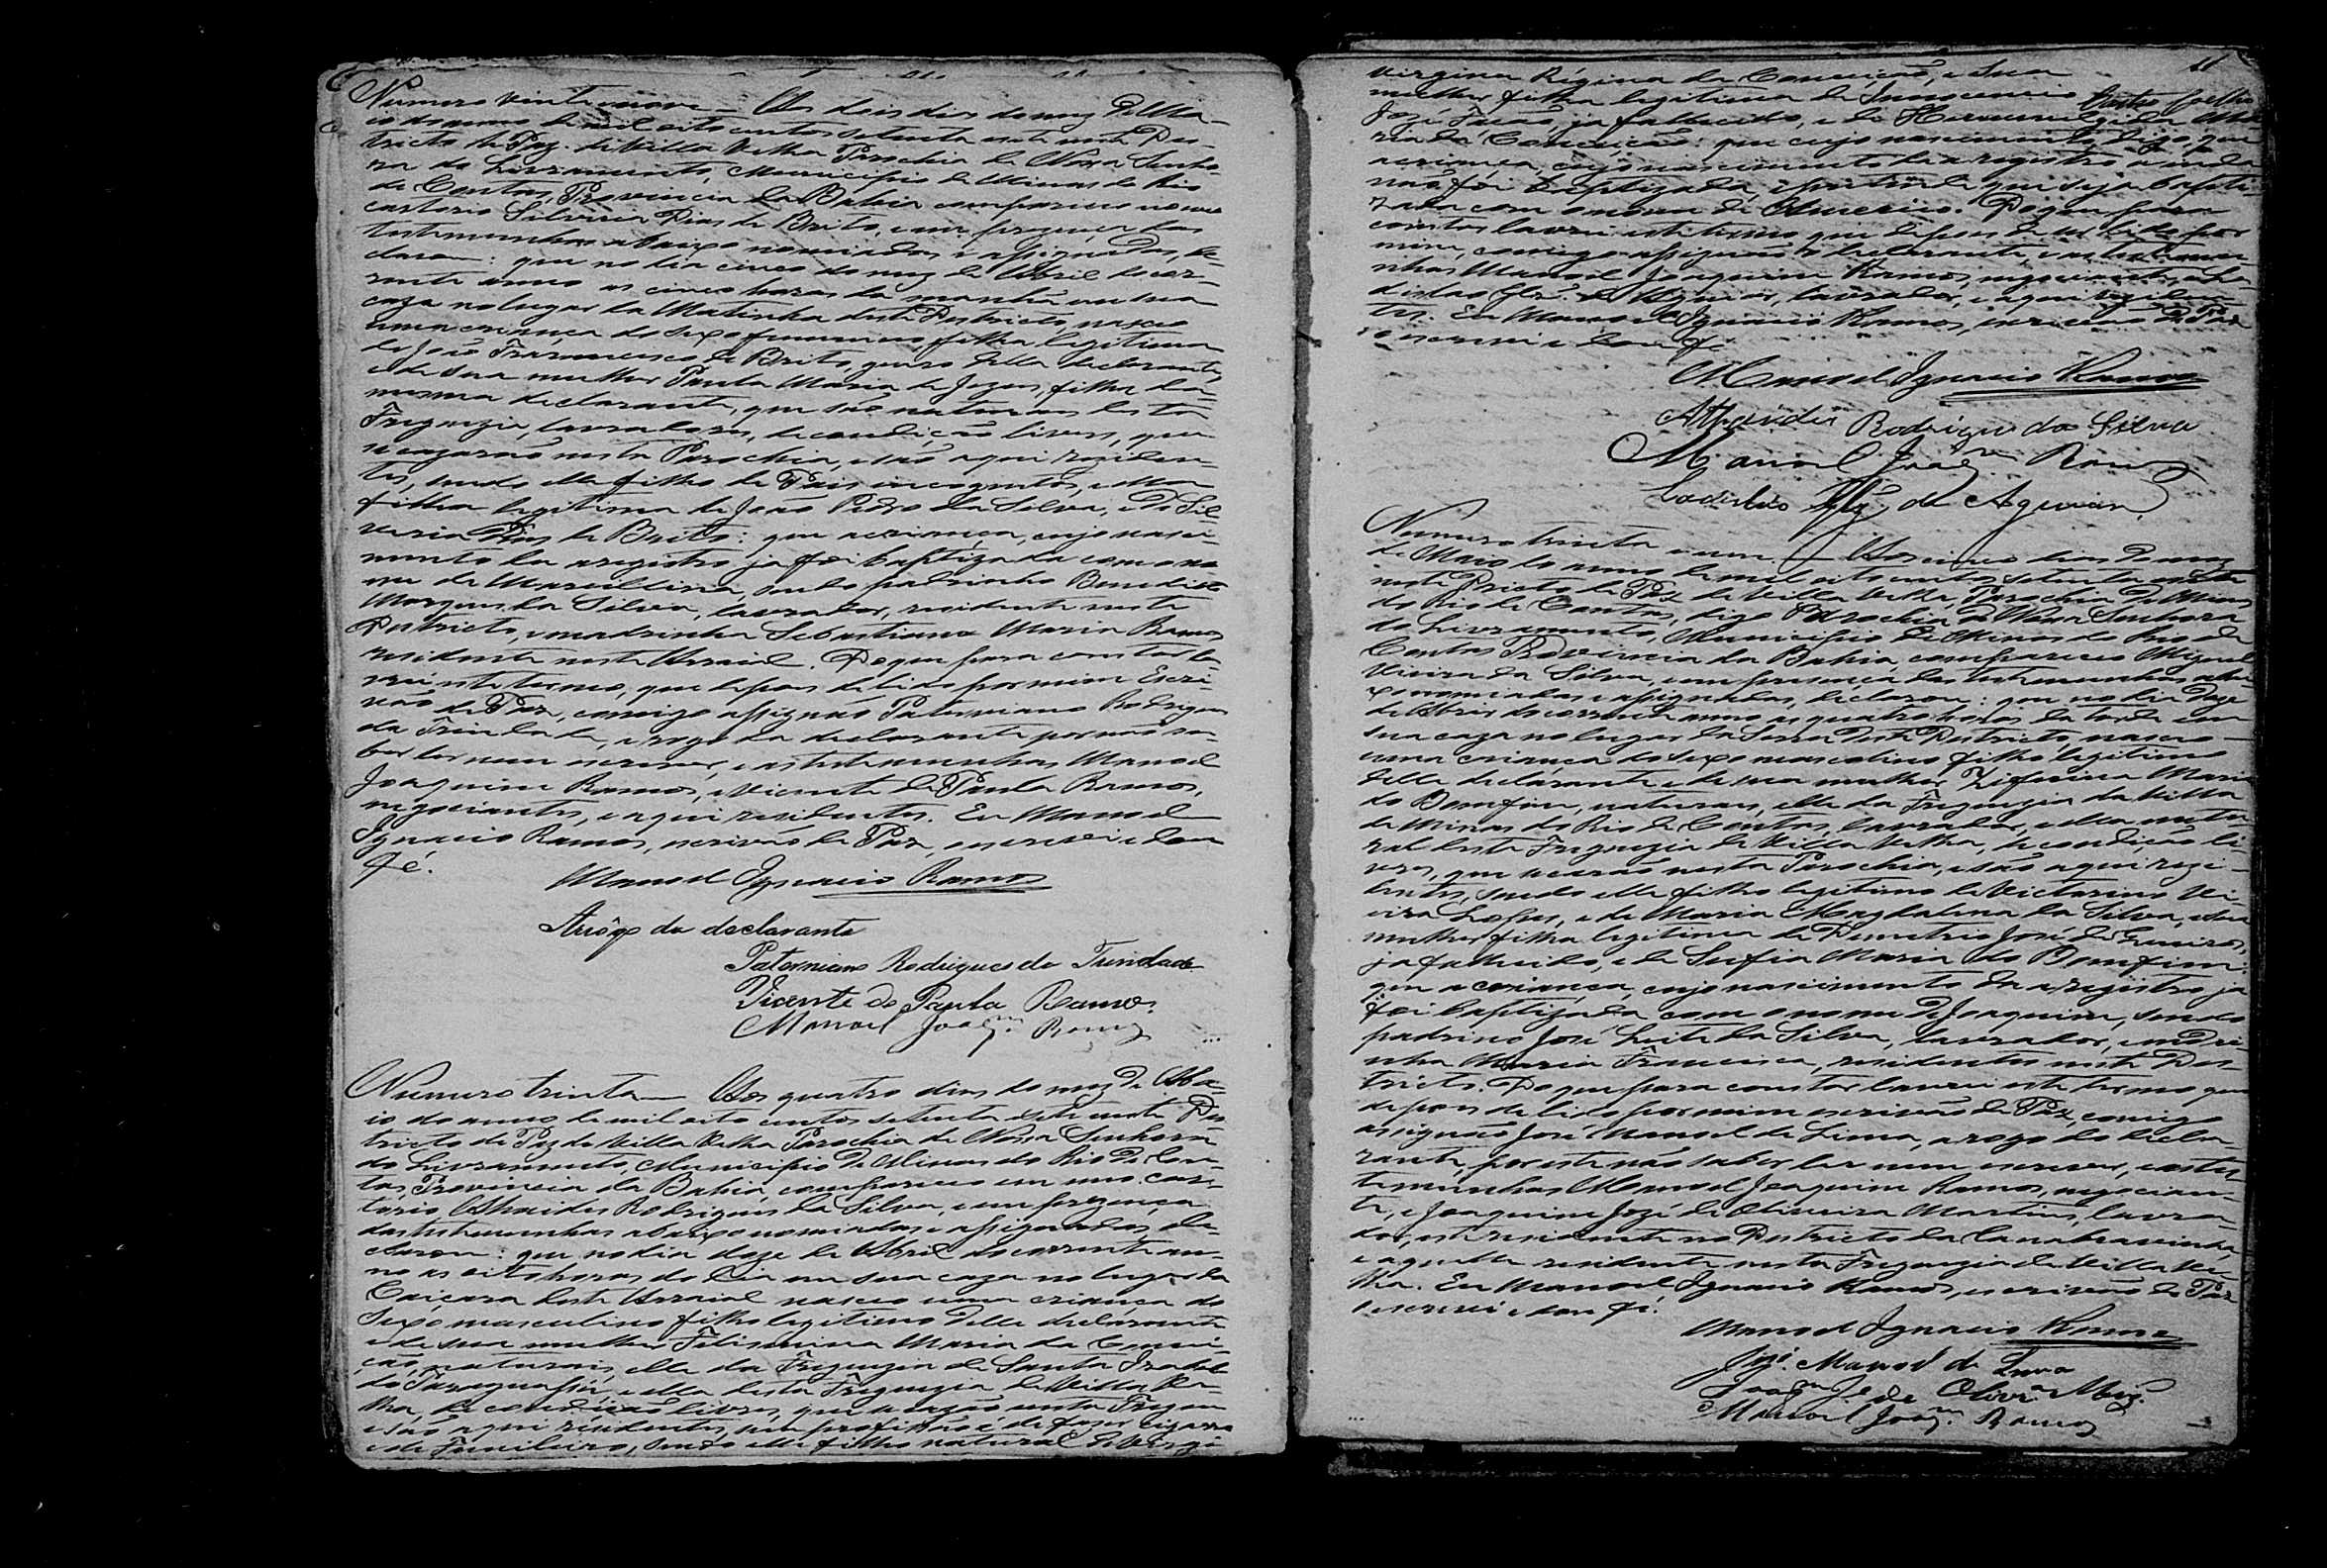 Numero vinte nove — Aos dois dias do mez de Ma-
io do anno de mil oito centos setenta e sete neste Des-
tricto de Paz de Villa Velha Parochia de Nossa Senho-
ra do Livramento, Municipio de Minas do Rio
de Contas, Provincia da Bahia compareceu no meu
cartorio Silveria Dias de Brito, e em prezença das
testemunhas abaixo nomiadas e assignadas, de-
clarou: que no dia cinco do mez de Abril do cor-
rente anno as cinco horas da manhã em sua
caza no lugar da Matinha deste Destricto, nasceu
uma criança do sexo feminino filha legitima
de João Francisco de Brito, genro della declarante,
e de sua mulher Paula Maria de Jezus, filha da
mesma declarante, que são naturaes desta
Freguezia, lavradores, de condição livres, que
se cazarão nesta Parochia, e são aqui residen-
tes, sendo elle filho de Pais incognitos, e ella
filha legitima de João Pedro da Silva, e de Sil-
veria Dias de Brito: que a criança, cujo nasci-
mento da a registro ja foi baptizada com o no-
me de Marcillina, sendo padrinho Benedicto
Marques da Silva, lavrador, residente neste
Destricto, e madrinha Sebastiana Maria Ramos
residente neste Arraial. Do que para constar la-
vrei este termo, que depois de lido por mim Escri-
vão de Paz, comigo assignão Paterniano Rodrigues
da Trindade, a rogo da declarante por não sa-
ber ler nem escrever, e as testemunhas Manoel
Joaquim Ramos, e Vicente de Paula Ramos,
negociantes, e aqui residentes. Eu Manoel
Ignacio Ramos, escrivão de Paz, o escrevi e dou
fé.
Manoel Ignacio Ramos
Arôgo da declarante
Paterniano Rodrigues da Trindade
Vicente de Paula Ramos.
Manoel Joaqm. Ramos
Numero trinta — Aos quatro dias do mez de Ma-
io do anno de mil oito centos setenta e sete neste Des-
tricto de Paz de Villa Velha Parochia de Nossa Senhora
do Livramento, Municipio de Minas do Rio de Con-
tas, Provincia da Bahia, compareceu em meu car-
torio Rodrigues da Silva, e em prezença
das testemunhas abaixo nomiadas e assignadas, de-
clarou: que no dia doze de Abril do corrente an-
no as oito horas do dia em sua caza no lugar da
Caiçara deste Arraial nasceu uma criança do
Sexo masculino filho legitimo delle declarante
e de sua mulher Maria da Concei-
ção, naturais, elle da Freguezia de Santa Izabel
do Paraguassú, e ella desta Freguezia de Villa Ve-
lha, de condição livres, que se cazão nesta Fregue
e são aqui rezidentes, sem profissão é de fazer cigarro
e de Funileiro, sendo elle filho natural de Virgi
11
Virginia Régina da Conceição, e sua
mulher filha legitima de Innocencio
José ja fallecido, e de Ma-
ria da Conceição: que cujo nascimento, digo, que
a criança, cujo nascimento da a registro ainda
não foi baptizada, e pertende que seja bapti-
zada com o nome de Americo. Do que para
constar lavrei este termo que depois de lido por
mim, comigo assignão o declarante, e as testemu-
nhas Manoel Joaquim Ramos, negociante, e La-
disláo de Aguiar, lavrador, e aqui reziden-
tes. Eu Manoel Ignacio Ramos, escrivão de Paz
o escrevi e dou fé.
Manoel Ignacio Ramos
Rodrigues da Silva
Manoel Joaqm. Ramos
Ladisláo de Aguiar,
Numero trinta e um. — Aos cinco dias do mez
de Maio do anno de mil oito centos setenta e sete
neste Districto de Paz de Villa Velha, Parochia de Minas
do Rio de Contas, digo Parochia de Nossa Senhora
do Livramento, Municipio de Minas do Rio de
Contas Provincia da Bahia, compareceu Miguel
Vieira da Silva, e em presença das testemunhas abai-
xo nomiadas e assignadas, declarou: que no dia doze
de Abril do corrente anno as quatro horas da tarde em
sua caza no lugar da Serra deste Destricto, nasceu
uma criança do sexo masculino filho legitimo
delle declarante e de sua mulher Ziferina Maria
do Bomfim, naturais, elle da Freguezia da Villa
de Minas do Rio de Contas, lavrador, e ella natu-
ral desta Freguezia de Villa Velha, de condição li-
vres, que nesta Parochia, e são aqui rezi-
dentes, sendo elle filho legitimo de Victorino Vi-
eira Lopes, e de Maria Magdalena da Silva, e sua
mulher filha legitima de Demetrio José de
ja fallecido, e de Maria do Bomfim:
que a criança, cujo nascimento da a registro, ja
foi baptizada com o nome de Joaquim, sendo
padrinho José Leite da Silva, lavrador, e madri-
nha Maria Francisca, residentes neste Des-
tricto. Do que para constar lavrei este termo que
depois de lido por mim escrivão de Paz, comigo
assignão José Manoel de Lima, a rogo do decla-
rante, por este não saber ler nem escrever, e as tes-
temunhas Manoel Joaquim Ramos, negocian-
te, e Joaquim José de Oliveira Martins, lavra-
dor, este residente no Destricto da Canabravinha
e aquelle residente nesta Freguezia de Villa Ve-
lha. Eu Manoel Ignacio Ramos, escrivão de Paz
o escrevi e dou fé.
Manoel Ignacio Ramos
José Manoel de Lima
Joaqm. Je. de Olivra. Miz.
Manoel Joaqm. Ramos